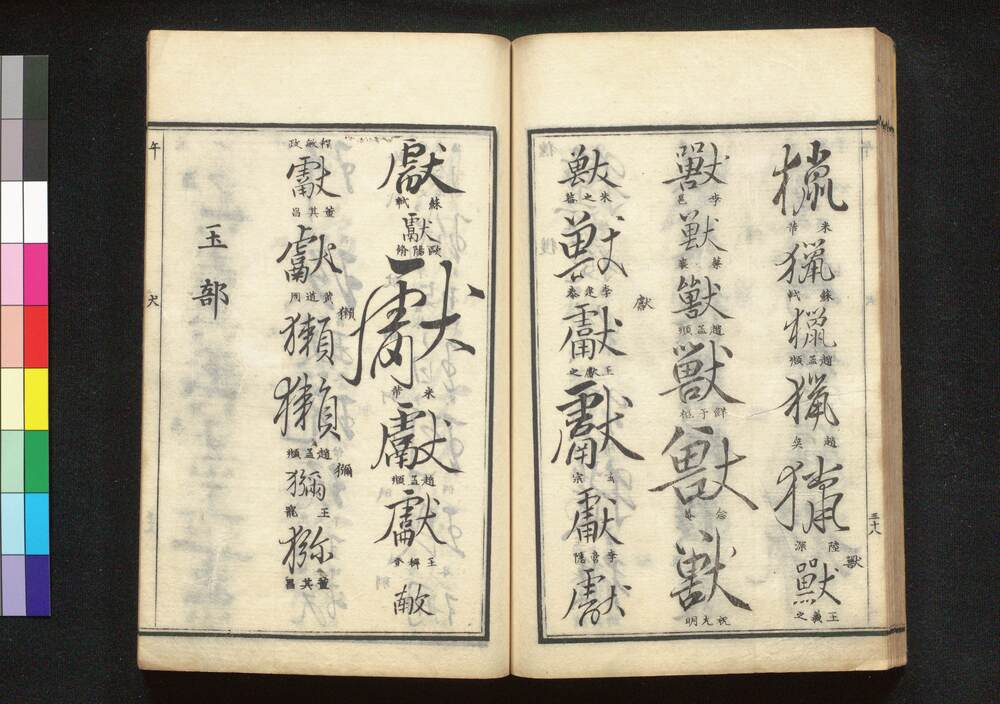 三十八
獵
米芾
獵
蘇軾
獵
趙孟頫
獵
趙奐
獵
陸深
獸
獸
王羲之
獸
李邕
獣
獸
趙孟頫
獸
鮮于樞
獸
獸
祝允明
獣
米之
獸
李建泰
獻
獻
王獻之
獻
玄宗
獻
李商隱
獻
蘇軾
獻
歐陽脩
獻
米芾
獻
趙孟頫
獻
王穉登
献
程敏政
獻
董其昌
獻
黃道周
獺
獺
獺
趙孟頫
獼
獼
王寵
猕
董其昌
玉部
午
犬